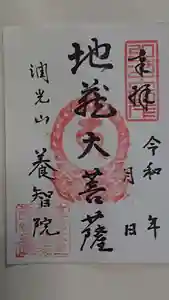 奉拝
令和 年
月 日
地蔵大菩薩
潤光山
養智院